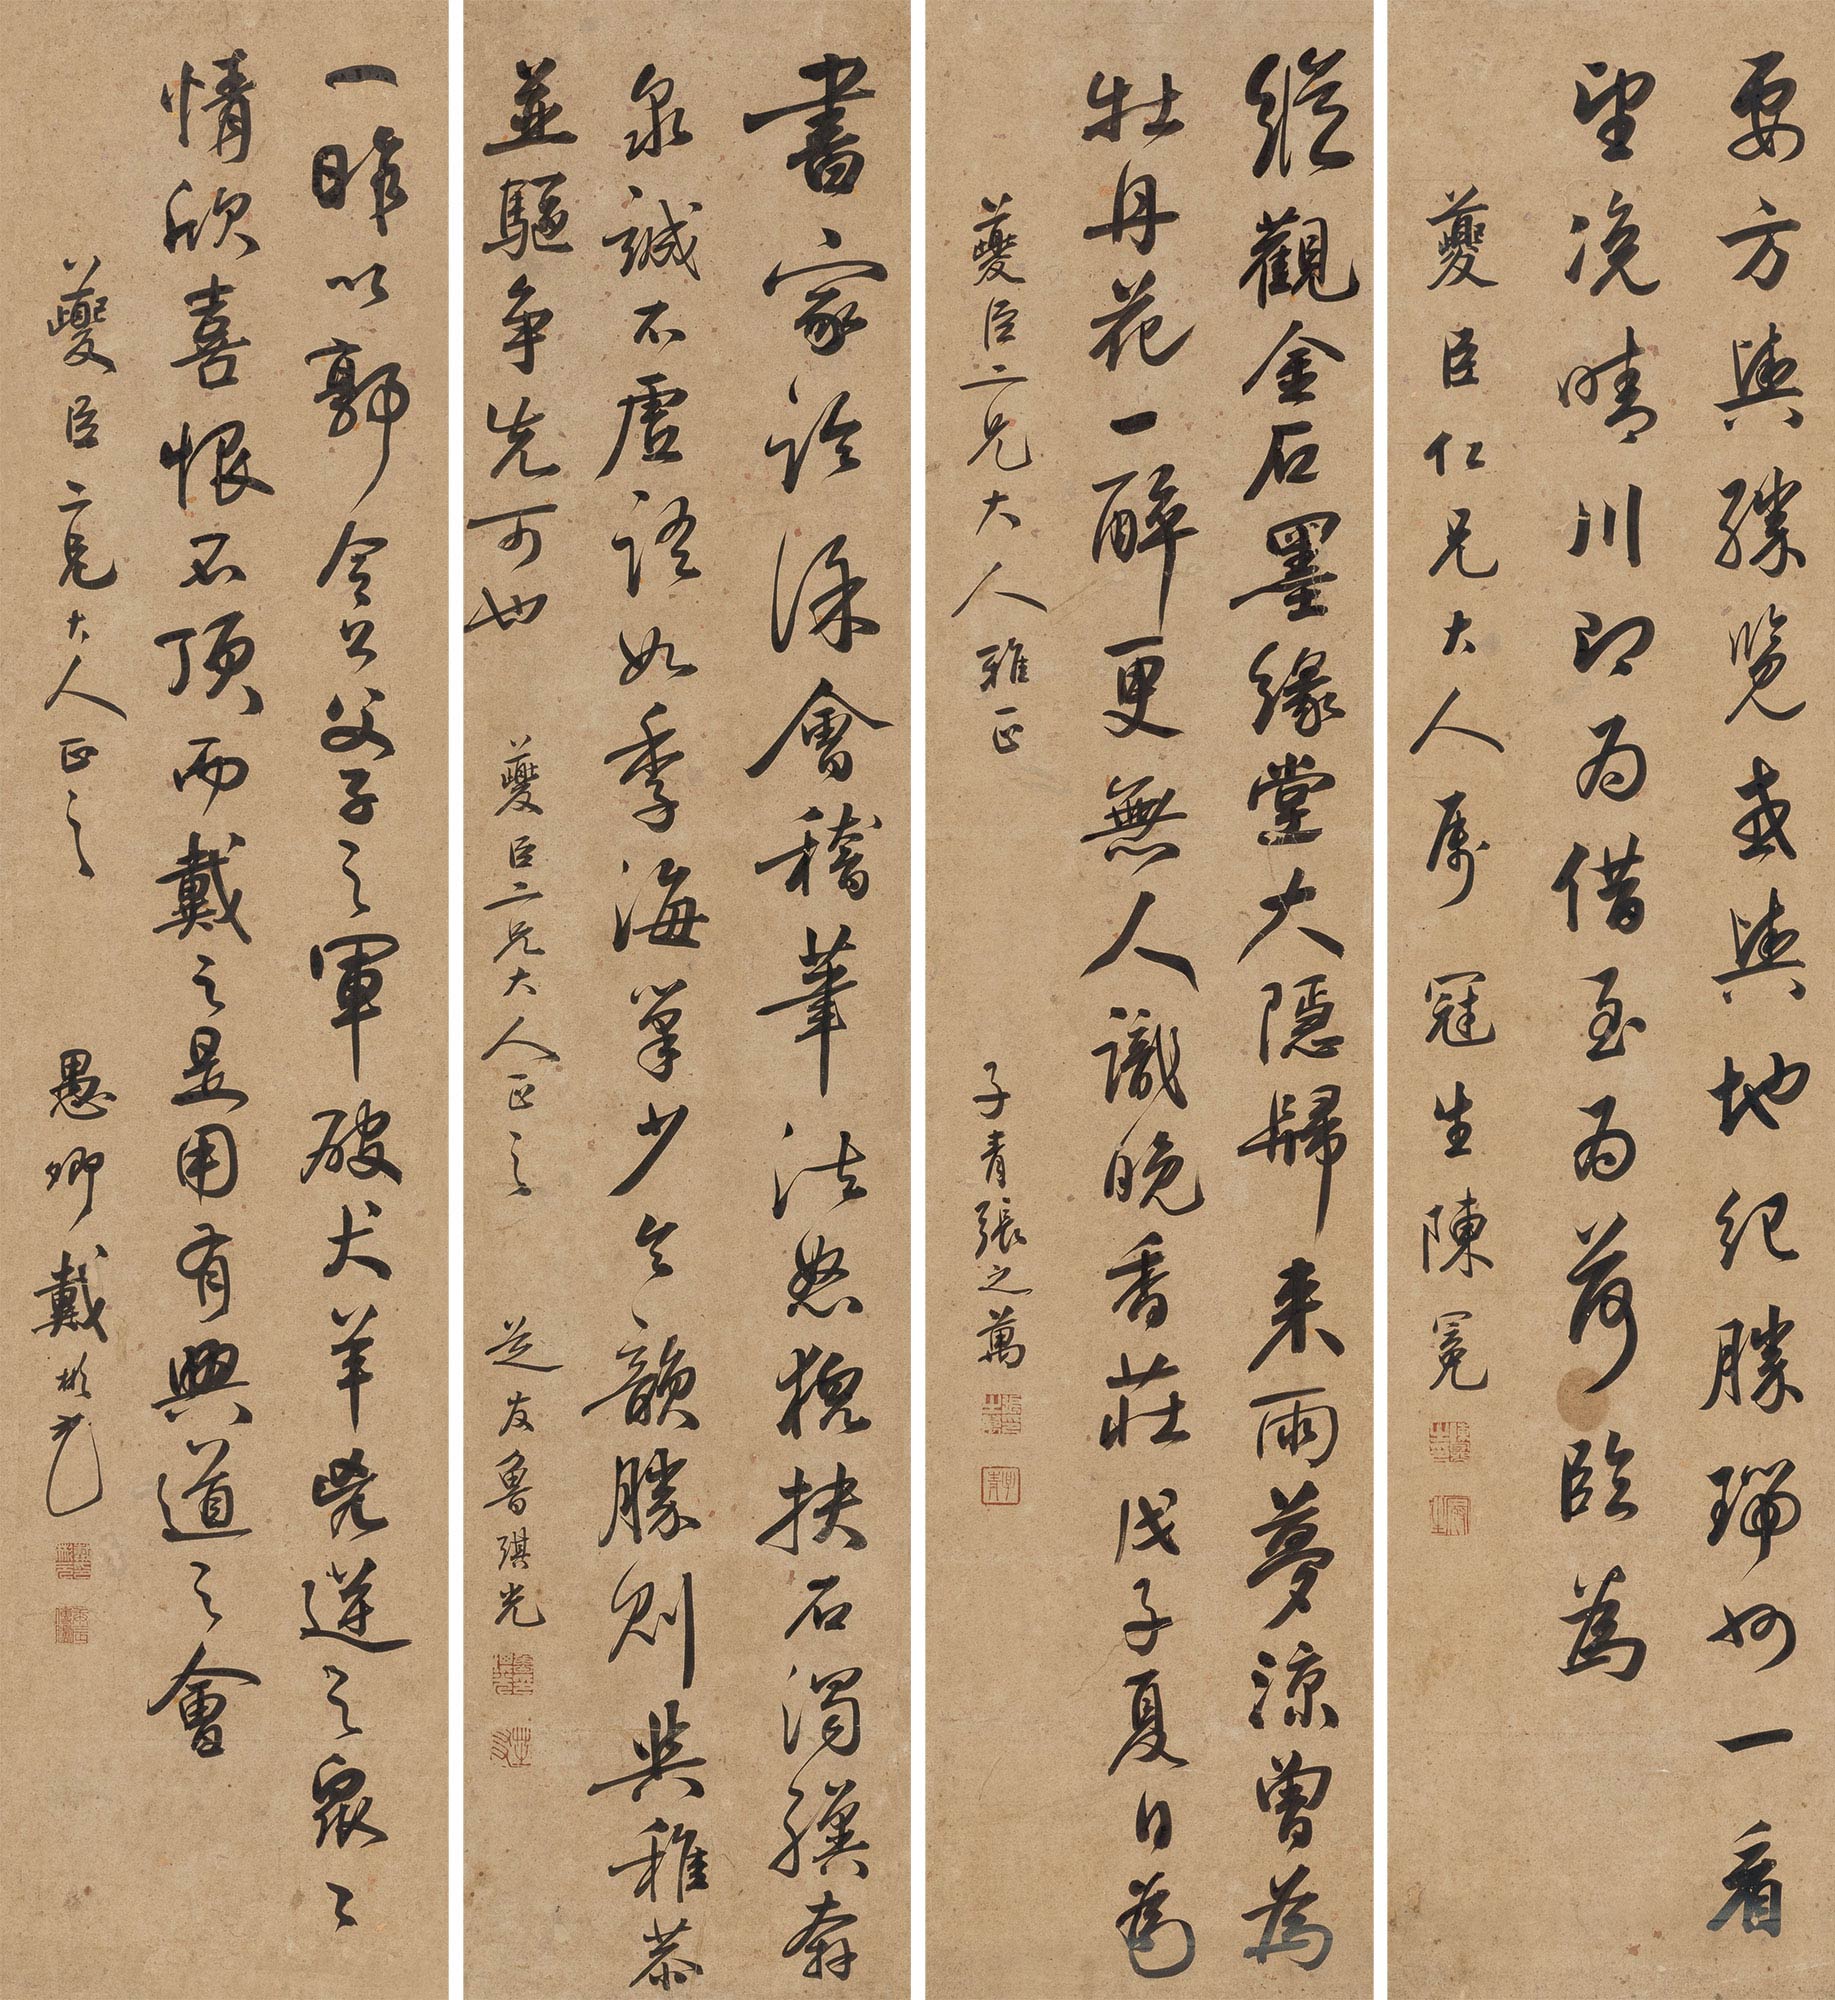 要方輿勝覽或輿地紀勝瑞州一看
望浼晴川即為借至為荷臨為
夔臣仁兄大人屬 冠生陳冕
縱觀金石墨緣堂大隱歸來雨夢涼曾為
牡丹花一醉更無人識晚香莊戊子夏日為
夔臣二兄大人雅正 子青張之萬
書家論徐會稽筆法怒猊抉石渴驥奔
泉誠不虛語如季海筆少令韻勝則與稚恭
並驅爭先可也
夔臣二兄大人正之 芝友魯琪光
一昨以郭令公父子之軍破犬羊兇逆之眾眾
情欣喜恨不頂而戴之是用有興道之會
夔臣二兄大人正之 愚卿戴彬元